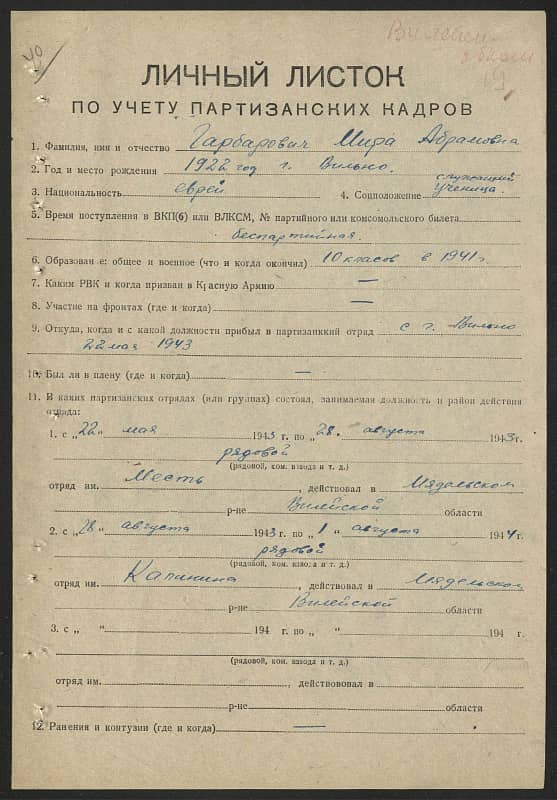 Вилейск.
обком
40
19
ЛИЧНЫЙ ЛИСТОК
ПО УЧЕТУ ПАРТИЗАНСКИХ КАДРОВ
1. Фамилия, имя и отчество Гарбарович Мира Абрамовна
2. Год и место рождения 1922 год г. Вильно.
служащий
3. Национальность еврей 4. Соцположение ученица.
5. Время поступления в ВКП(б) или ВЛКСМ, № партийного или комсомольского билета
беспартийная.
6. Образован е: общее и военное (что и когда окончил) 10 класов в 1941 г.
7. Каким РВК и когда призван в Красную Армию —
8. Участие на фронтах (где и когда) —
9. Откуда, когда и с какой должности прибыл в партизанкий отряд с г. Вильно
22 мая 1943
10. Был ли в плену (где и когда) —
11. В каких партизанских отрядах (или группах) состоял, занимаемая должность и район действия
отряда:
1. с „22" мая 1943 г. по „28" августа 1943 г.
рядовой
(рядовой, ком. взвода и т. д.)
отряд им. Месть, действовал в Мядельском
р-не Вилейской области
2. с „28" августа 1943 г. по „1" августа 1944 г.
рядовой
(рядовой, ком. взвода и т. д.)
отряд им. Калинина, действовал в Мядельском
р-не Вилейской области
3. с „ " 194 г. по „ " 194 г.
(рядовой, ком. взвода и т. д.)
отряд им. , действововал в
р-не области
12. Ранения и контузии (где и когда) —